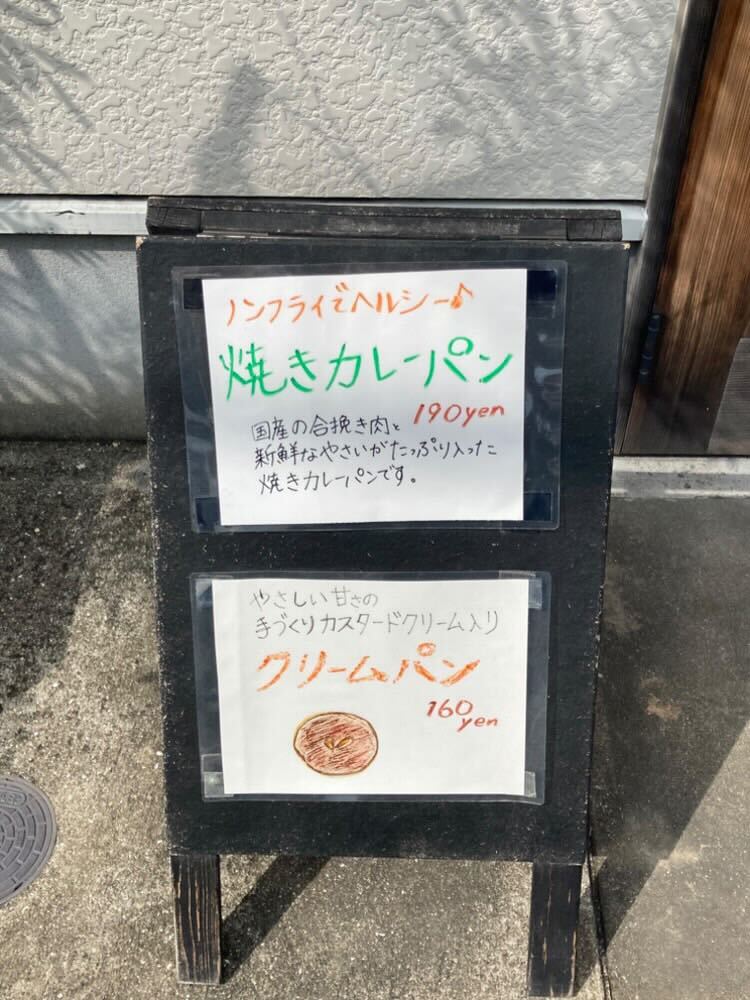 ノンフライでヘルシー♪
焼きカレーパン
190yen
国産の合挽き肉と
新鮮なやさいがたっぷり入った
焼きカレーパンです。
やさしい甘さの
手づくりカスタードクリーム入り
クリームパン
160
yen